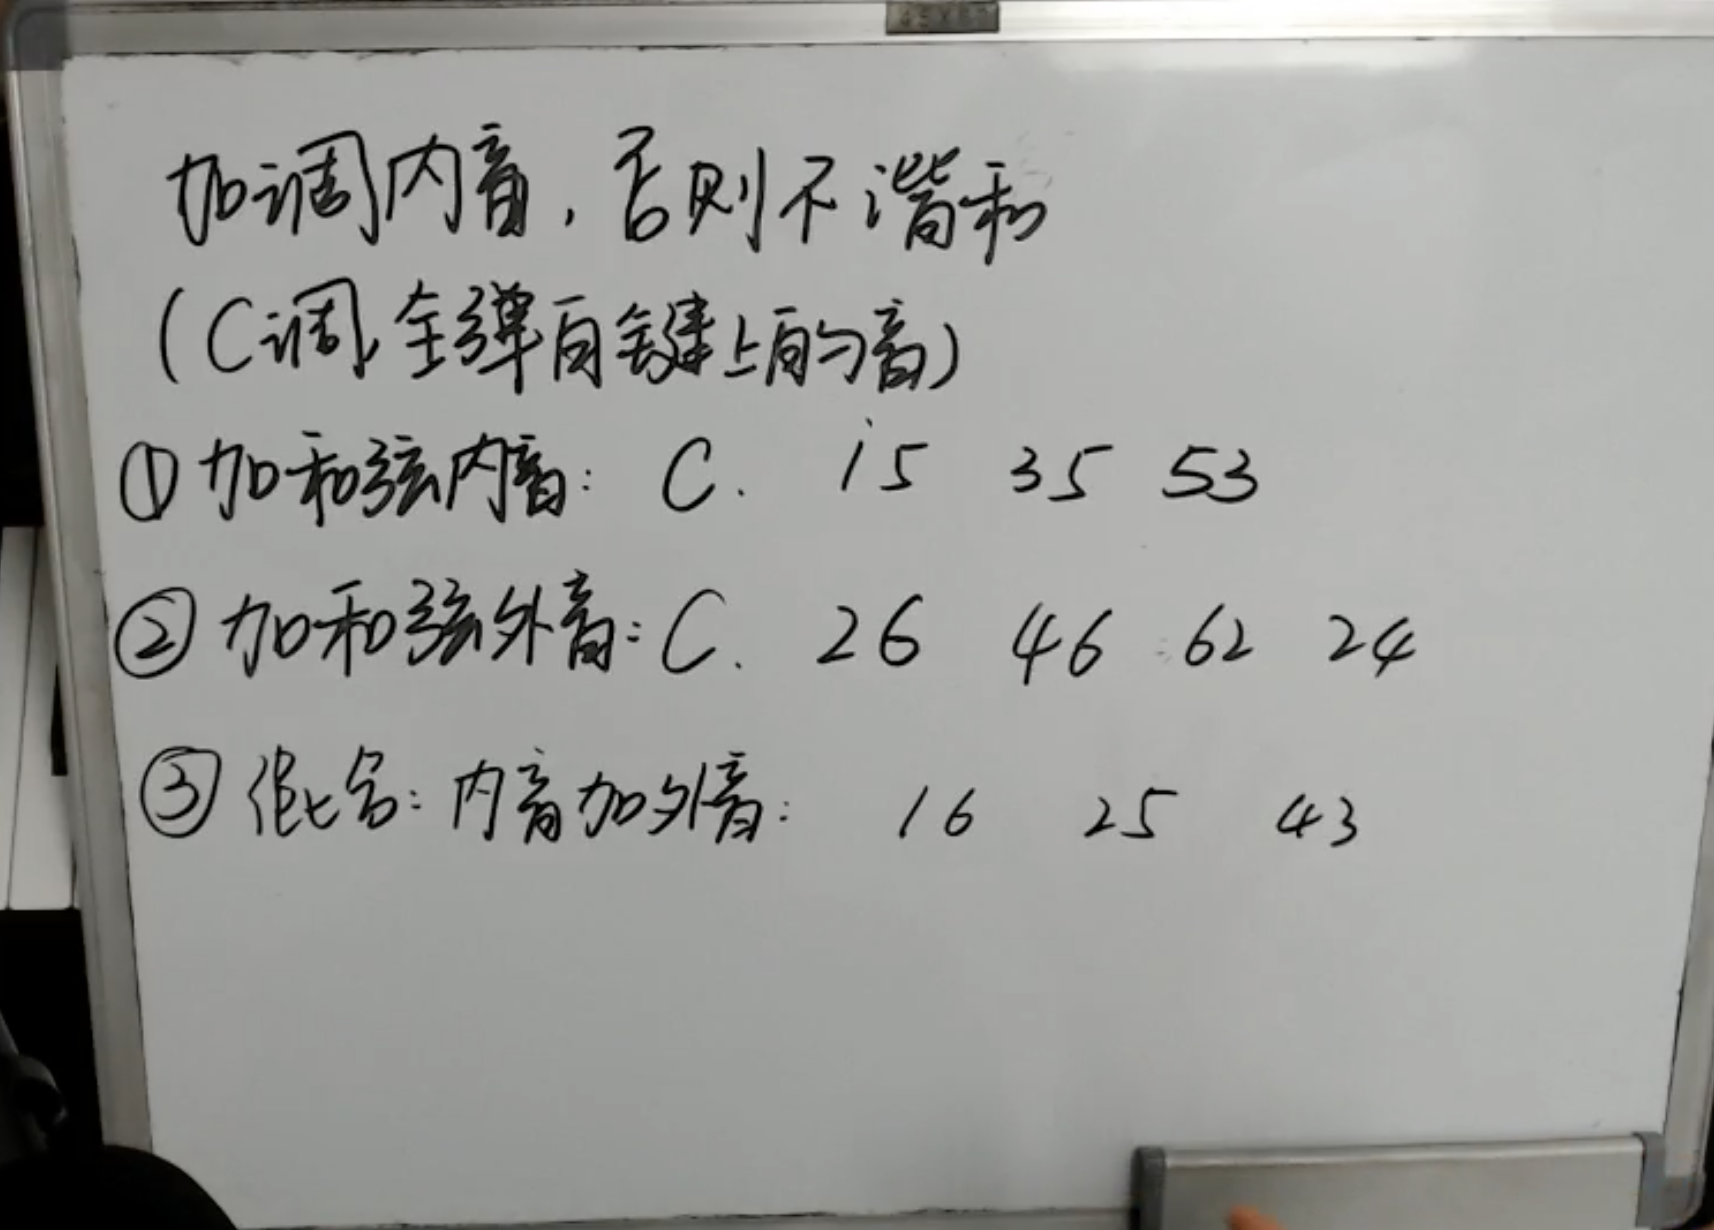 加调内音，否则不谐和
（C调全弹白键上的音）
①加和弦内音：C. i5 35 53
②加和弦外音：C. 26 46 62 24
③混合：内音加外音： 16 25 43